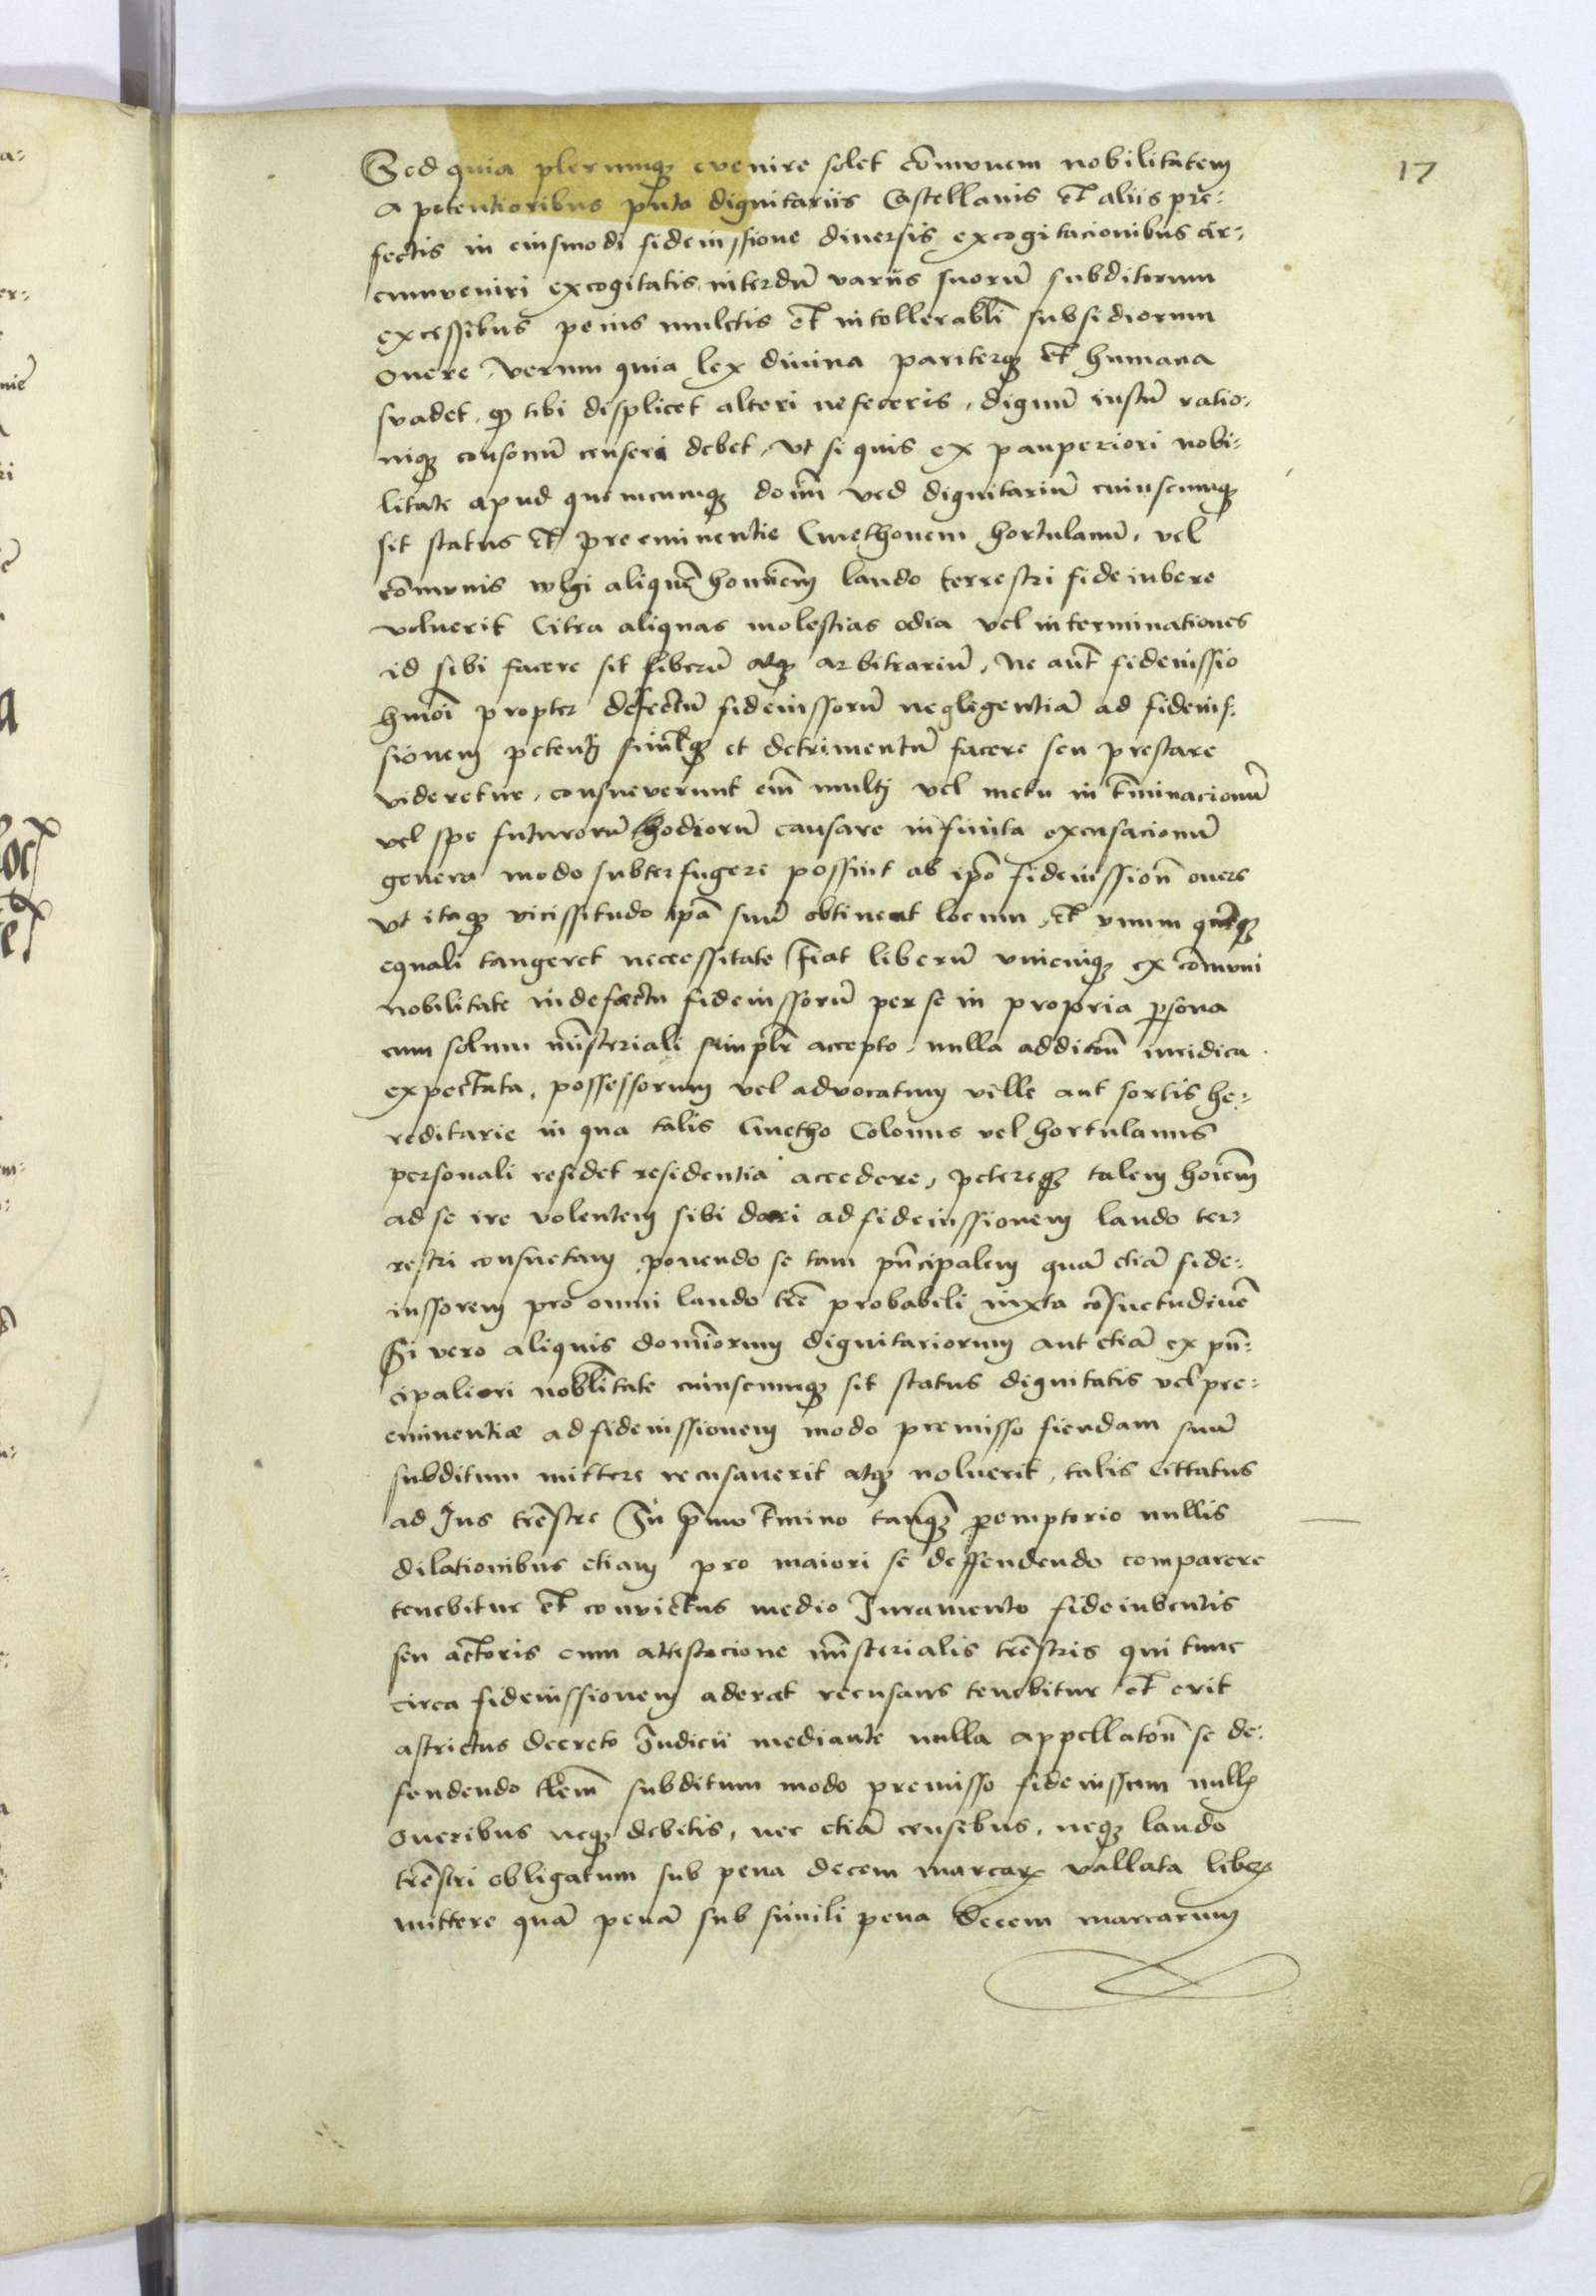 17
Sed quia plerumqꝫ evenire solet cōmvnem nobilitatem
a potentioribus puto dignitariis Castellanis et aliis pre-
fectis in eiusmodi fideiussione diversis excogitacionibus cir-
cumveniri excogitatis interdū variis suorū subditorum
excessibus penis mulctis et intollerabli subsidiorum
onere, verum quia lex divina pariterqꝫ et humana
svadet, qꝫ tibi displicet alteri ne feceris, dignū iustū ratio-
niqꝫ consonū censeri debet, vt si quis ex pauperiori nobi-
litate apud quemcumqꝫ dom̄ ved dignitariū cuiuscumqꝫ
sit status et preeminentie Cmethonem hortulanū, vel
cōmvnis wlgi aliquē hominem laudo terrestri fideiubere
voluerit Citra aliquas molestias odia vel interminationes
id sibi facere sit liberū atqꝫ arbitrariū, Ne aut̄ fideiussio
hmoī propter defectū fideiussorū neglegentiā ad fideius-
sionem petentꝫ simlqꝫ et detrimentū facere seu prestare
videretur, consueverunt em̄ multj vel metu in t̄minacionū
vel spe futurorū hodiorū causare infinita excusacionū
genera modo subterfugere possint ab ip̄o fideiussion̄ onere
vt itaqꝫ vicissitudo ip̄a suū obtineat locum, et vnum quēqꝫ
equali tangeret neccessitate Fiat liberū vnicuiqꝫ ex cōmvni
nobilitate in defectu fideiussorū per se in propria ꝑsona
cum solum mīsteriali simplr̄ accepto, nulla additon̄ iuridica
expectata, possessorum vel advocatum ville aut sortis he-
reditarie in qua talis Cmetho Colonus vel hortulanus
personali residet residentia accedere, petereqꝫ talem hoīem
ad se ire volentem sibi dari ad fideiussionem laudo ter-
restri consuetam ponendo se tam pn̄cipalem quā etiā fide-
iussorem pro omni laudo trē probabili iuxta cōsuetudinē
Si vero aliquis dominorum dignitariorum aut etiā ex pn̄-
cipaliori noblitate cuiuscumqꝫ sit status dignitatis vel pre-
eminentiæ ad fideiussionem modo premisso fiendam suū
subditum mittere recusaverit atqꝫ noluerit, talis cittatus
ad Jus trēstre In pr̄mo t̄mino tanqꝫ peremptorio nullis
dilationibus etiam pro maiori se deffendendo comparere
tenebitur et convictus medio Juramento fideiubentis
seu actoris cum attestacione mīsterialis trēstris qui tunc
circa fideiussionem aderat recusans tenebitur et erit
astrictus decreto Judicii mediante nulla appellaton̄ se de-
fendendo tlem̄ subditum modo premisso fideiussum nullis
oneribus neqꝫ debitis, nec etiā censibus, neqꝫ laudo
trēstri obligatum sub pena decem marcarꝝ vallata libere
mittere quā penā sub simili pena decem marcarum